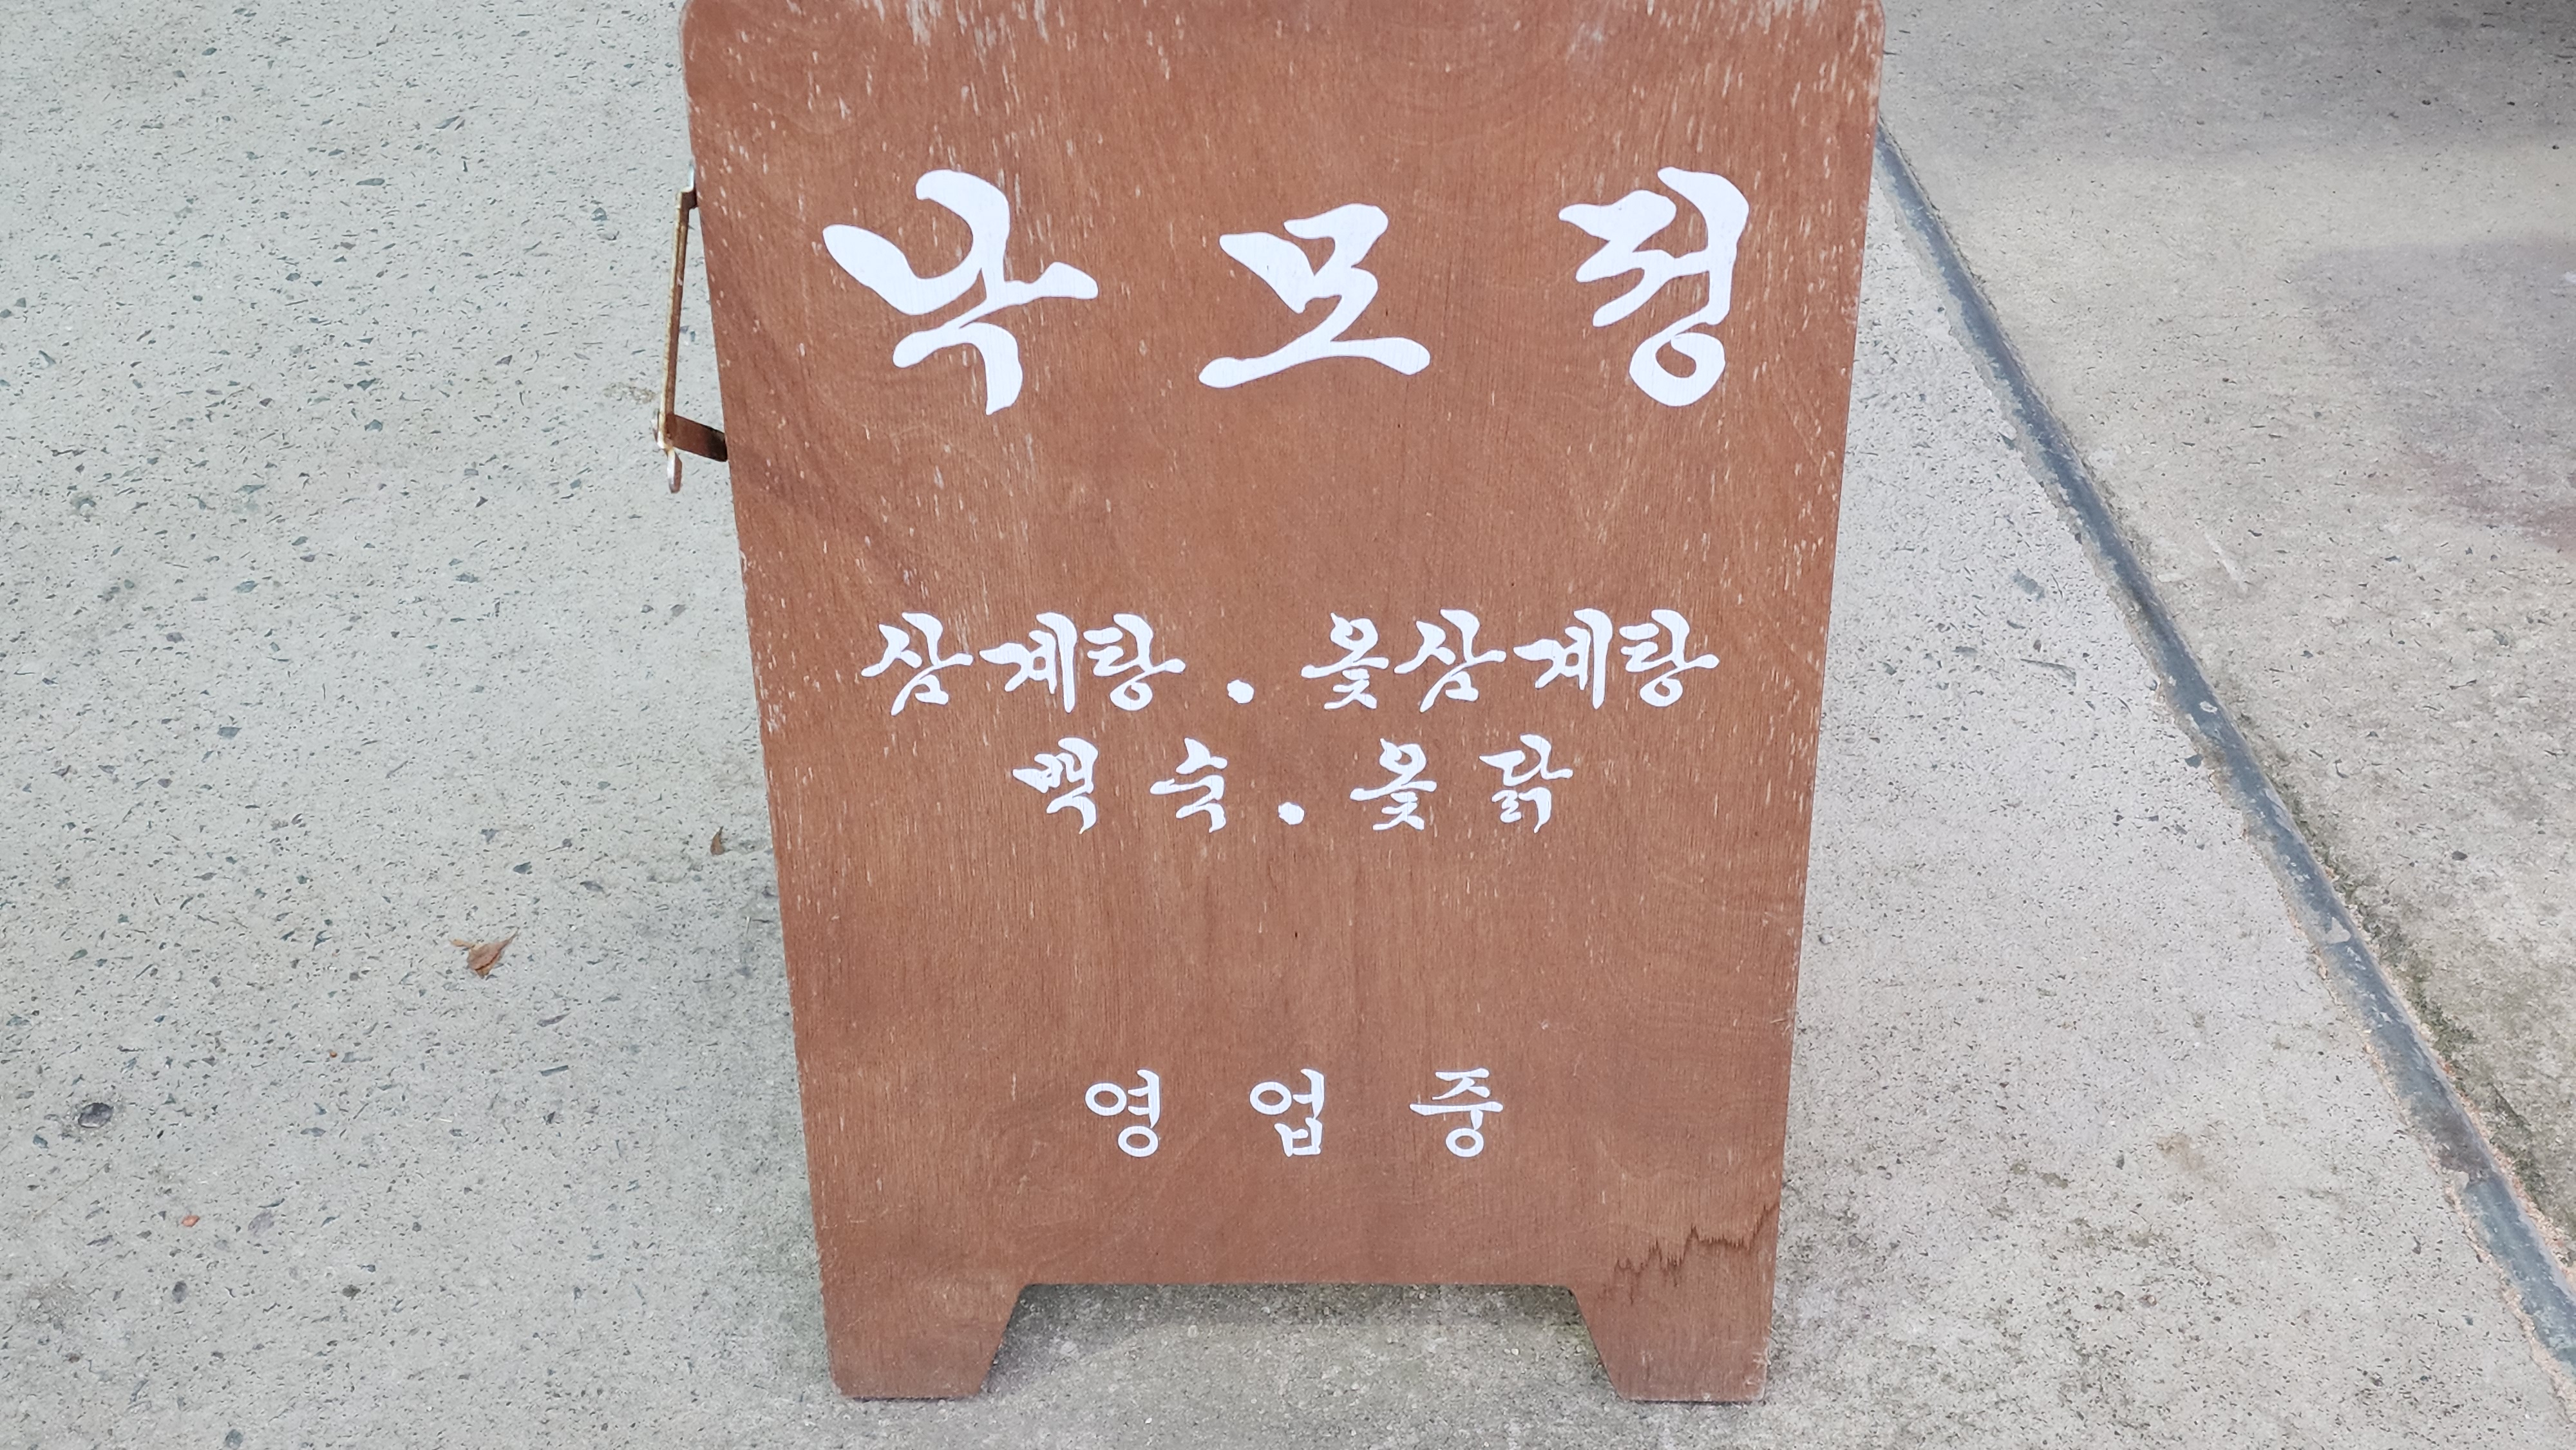 낙모정
삼계탕 . 옻삼계탕
백 숙 . 옻 닭
영 업 중